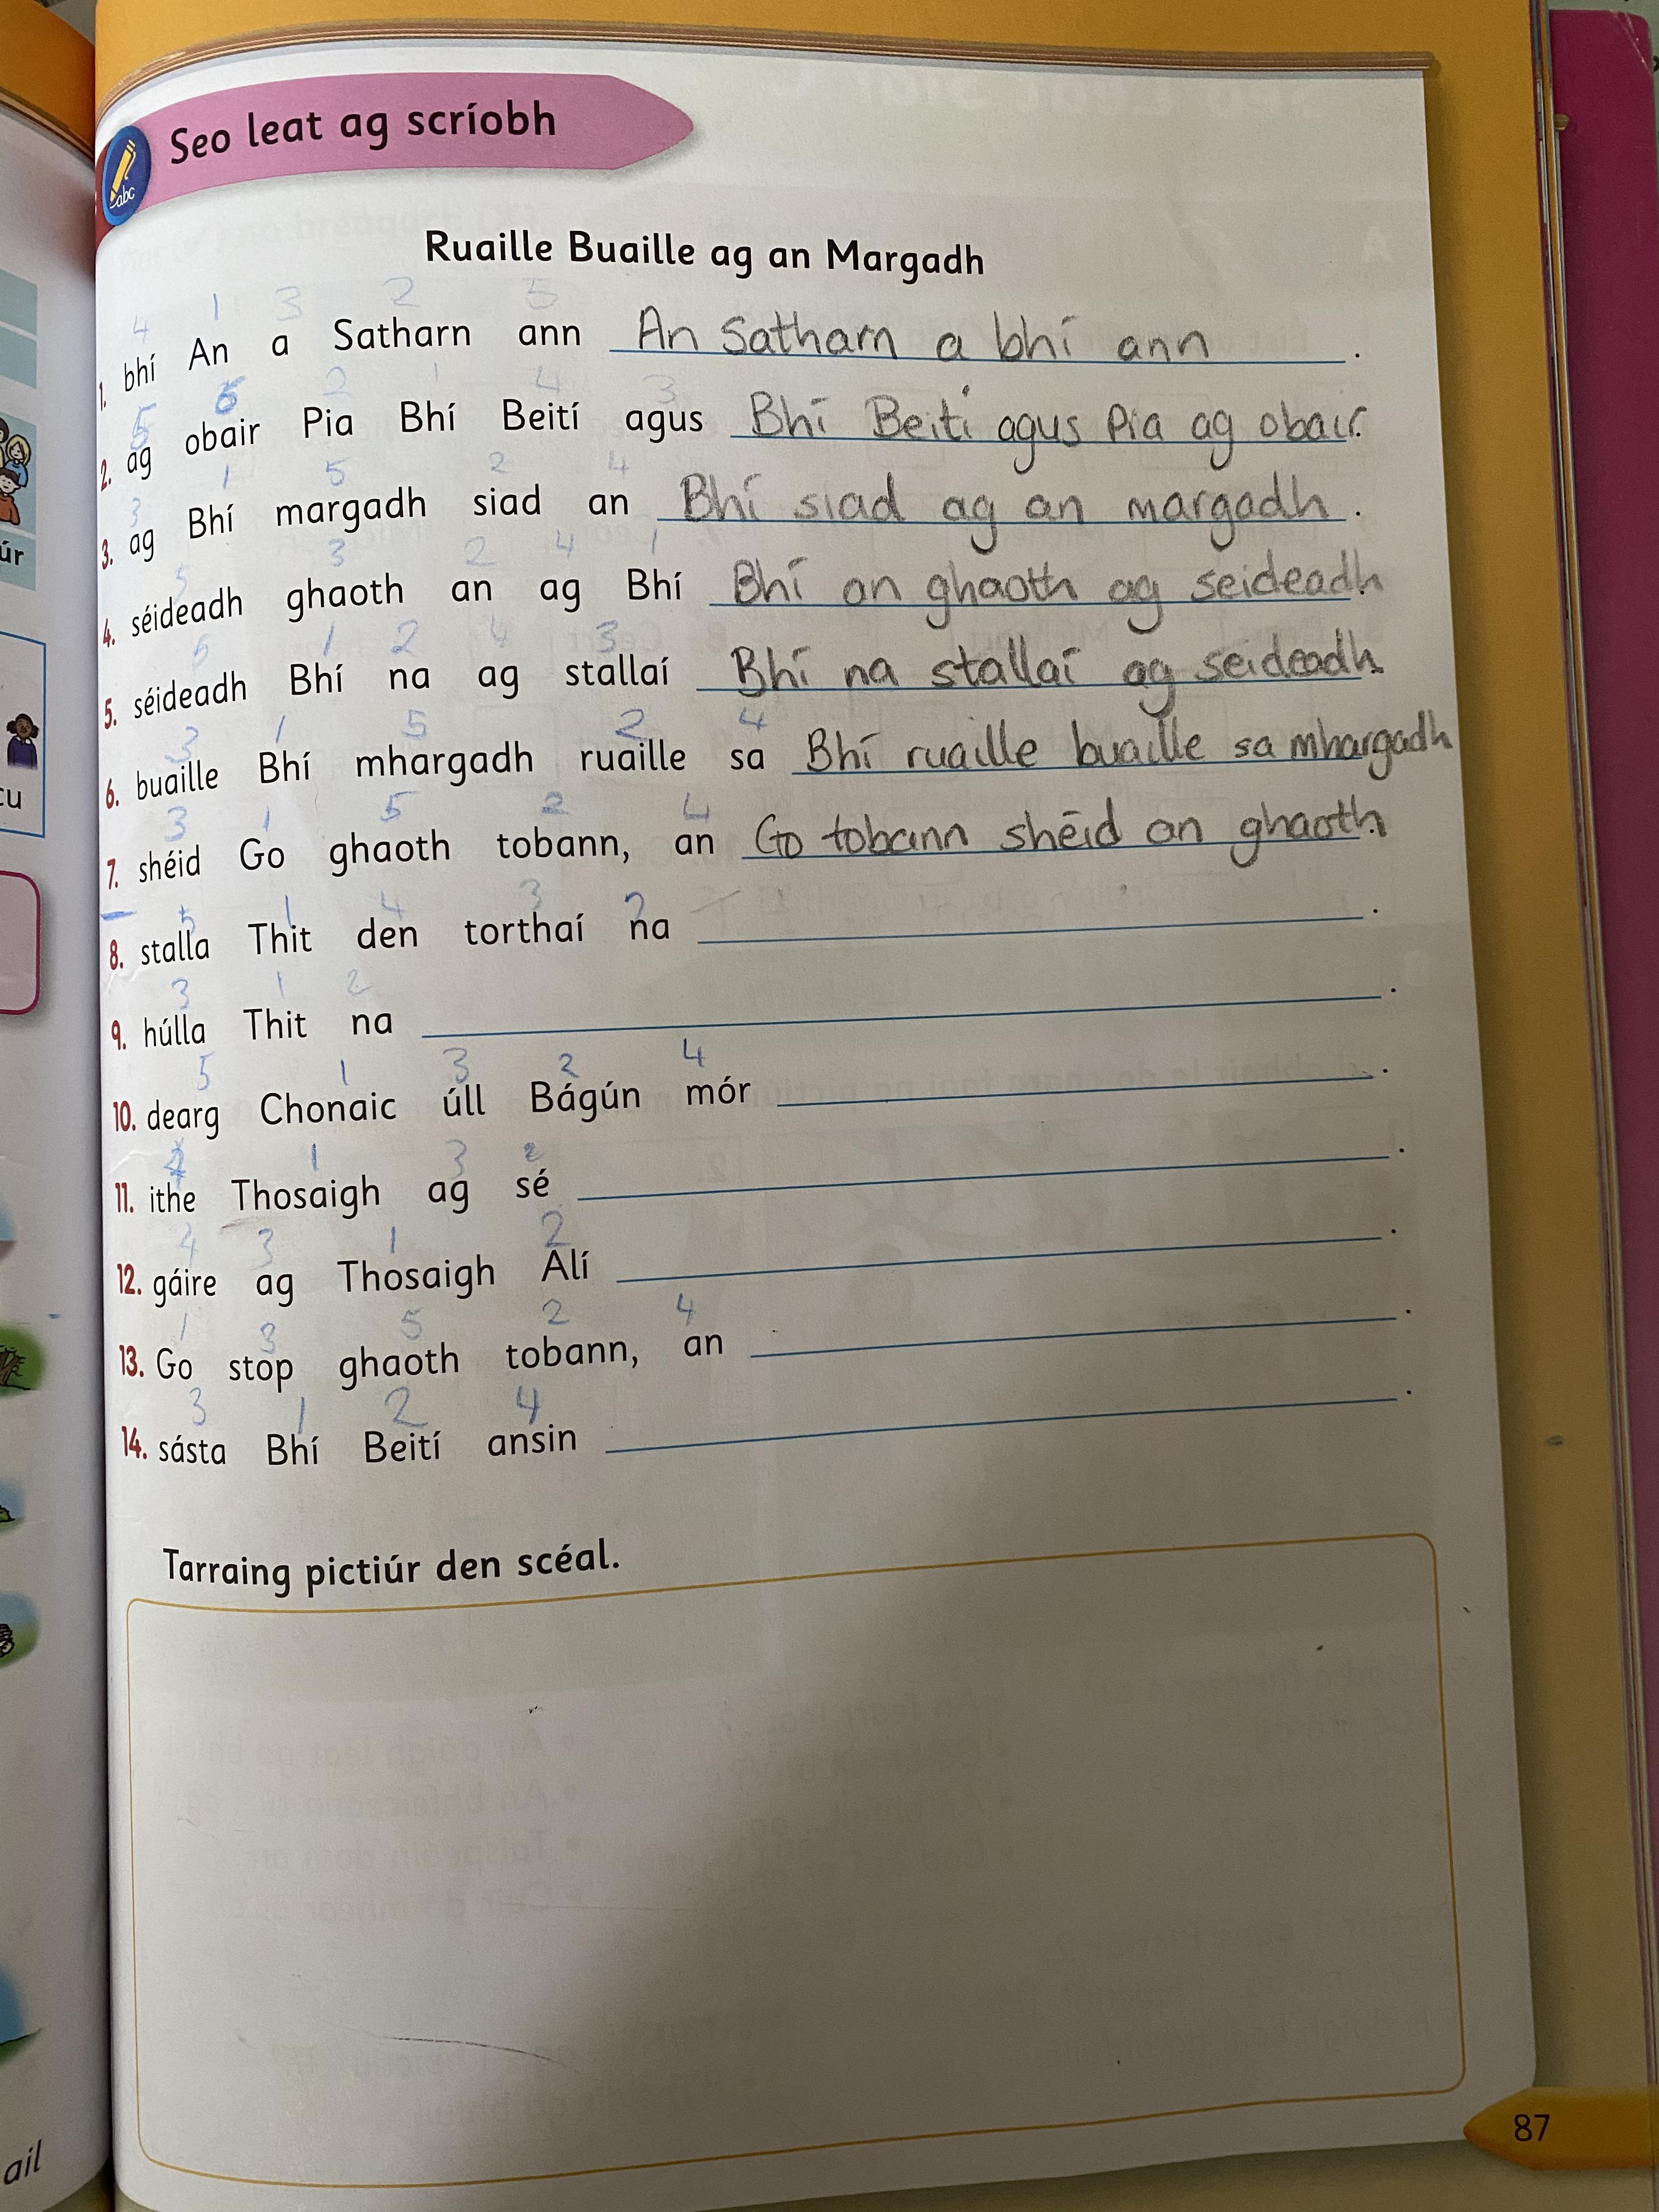 abc
Seo leat ag scríobh
Ruaille Buaille ag an Margadh
4 1 3 2 5
1. bhí An a Satharn ann An Satharn a bhí ann.
5 6 2 1 4 3
2. ag obair Pia Bhí Beití agus Bhí Beití agus Pia ag obair.
3 1 5 2 4
3. ag Bhí margadh siad an Bhí siad ag an margadh.
5 3 2 4 1
4. séideadh ghaoth an ag Bhí Bhí an ghaoth ag seideadh.
5 1 2 4 3
5. séideadh Bhí na ag stallaí Bhí na stallaí ag seideadh.
3 1 5 2 4
6. buaille Bhí mhargadh ruaille sa Bhí ruaille buaille sa mhargadh
3 1 5 2 4
7. shéid Go ghaoth tobann, an Go tobann shéid an ghaoth.
5 1 4 3 2
8. stalla Thit den torthaí na .
3 1 2
9. húlla Thit na .
5 1 3 2 4
10. dearg Chonaic úll Bágún mór .
4 1 3 2
11. ithe Thosaigh ag sé .
4 3 1 2
12. gáire ag Thosaigh Alí .
1 3 5 2 4
13. Go stop ghaoth tobann, an .
3 1 2 4
14. sásta Bhí Beití ansin .
Tarraing pictiúr den scéal.
87
úr
cu
ail